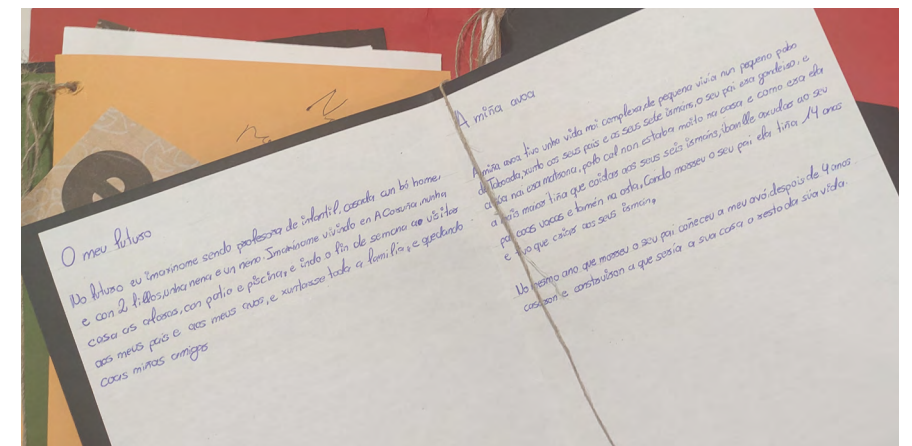 O meu futuro
No futuro eu imaxinome sendo profesora de infantil, casada cun bó home,
e con 2 fillos, unha nena e un neno. Imaxinome vivindo en A Coruña, nunha
casa as aforas, con patio e piscina, e indo o fin de semana a visitar
aos meus pais e aos meus avos, e xuntarse toda a familia, e quedando
coas miñas amigas
A miña avoa
A miña avoa tivo unha vida moi complexa, de pequena vivia nun pequeno pobo
de Taboada, xunto aos seus pais e os seus sete irmans, o seu pai era gandeiro, e
a súa nai era matrona, polo cal non estaba moito na casa e como era ela
a mais maior tiña que coidar aos seus seis irmans, ibanlle axudar ao seu
pai coas vacas e tamen na orta, Cando morreu o seu pai ela tiña 14 anos
e tivo que coidar aos seus irmans,
No mesmo ano que morreu o seu pai coñeceu a meu avoi, despois de 4 anos
casaron e construiron a que sería a sua casa o resto da sua vida.